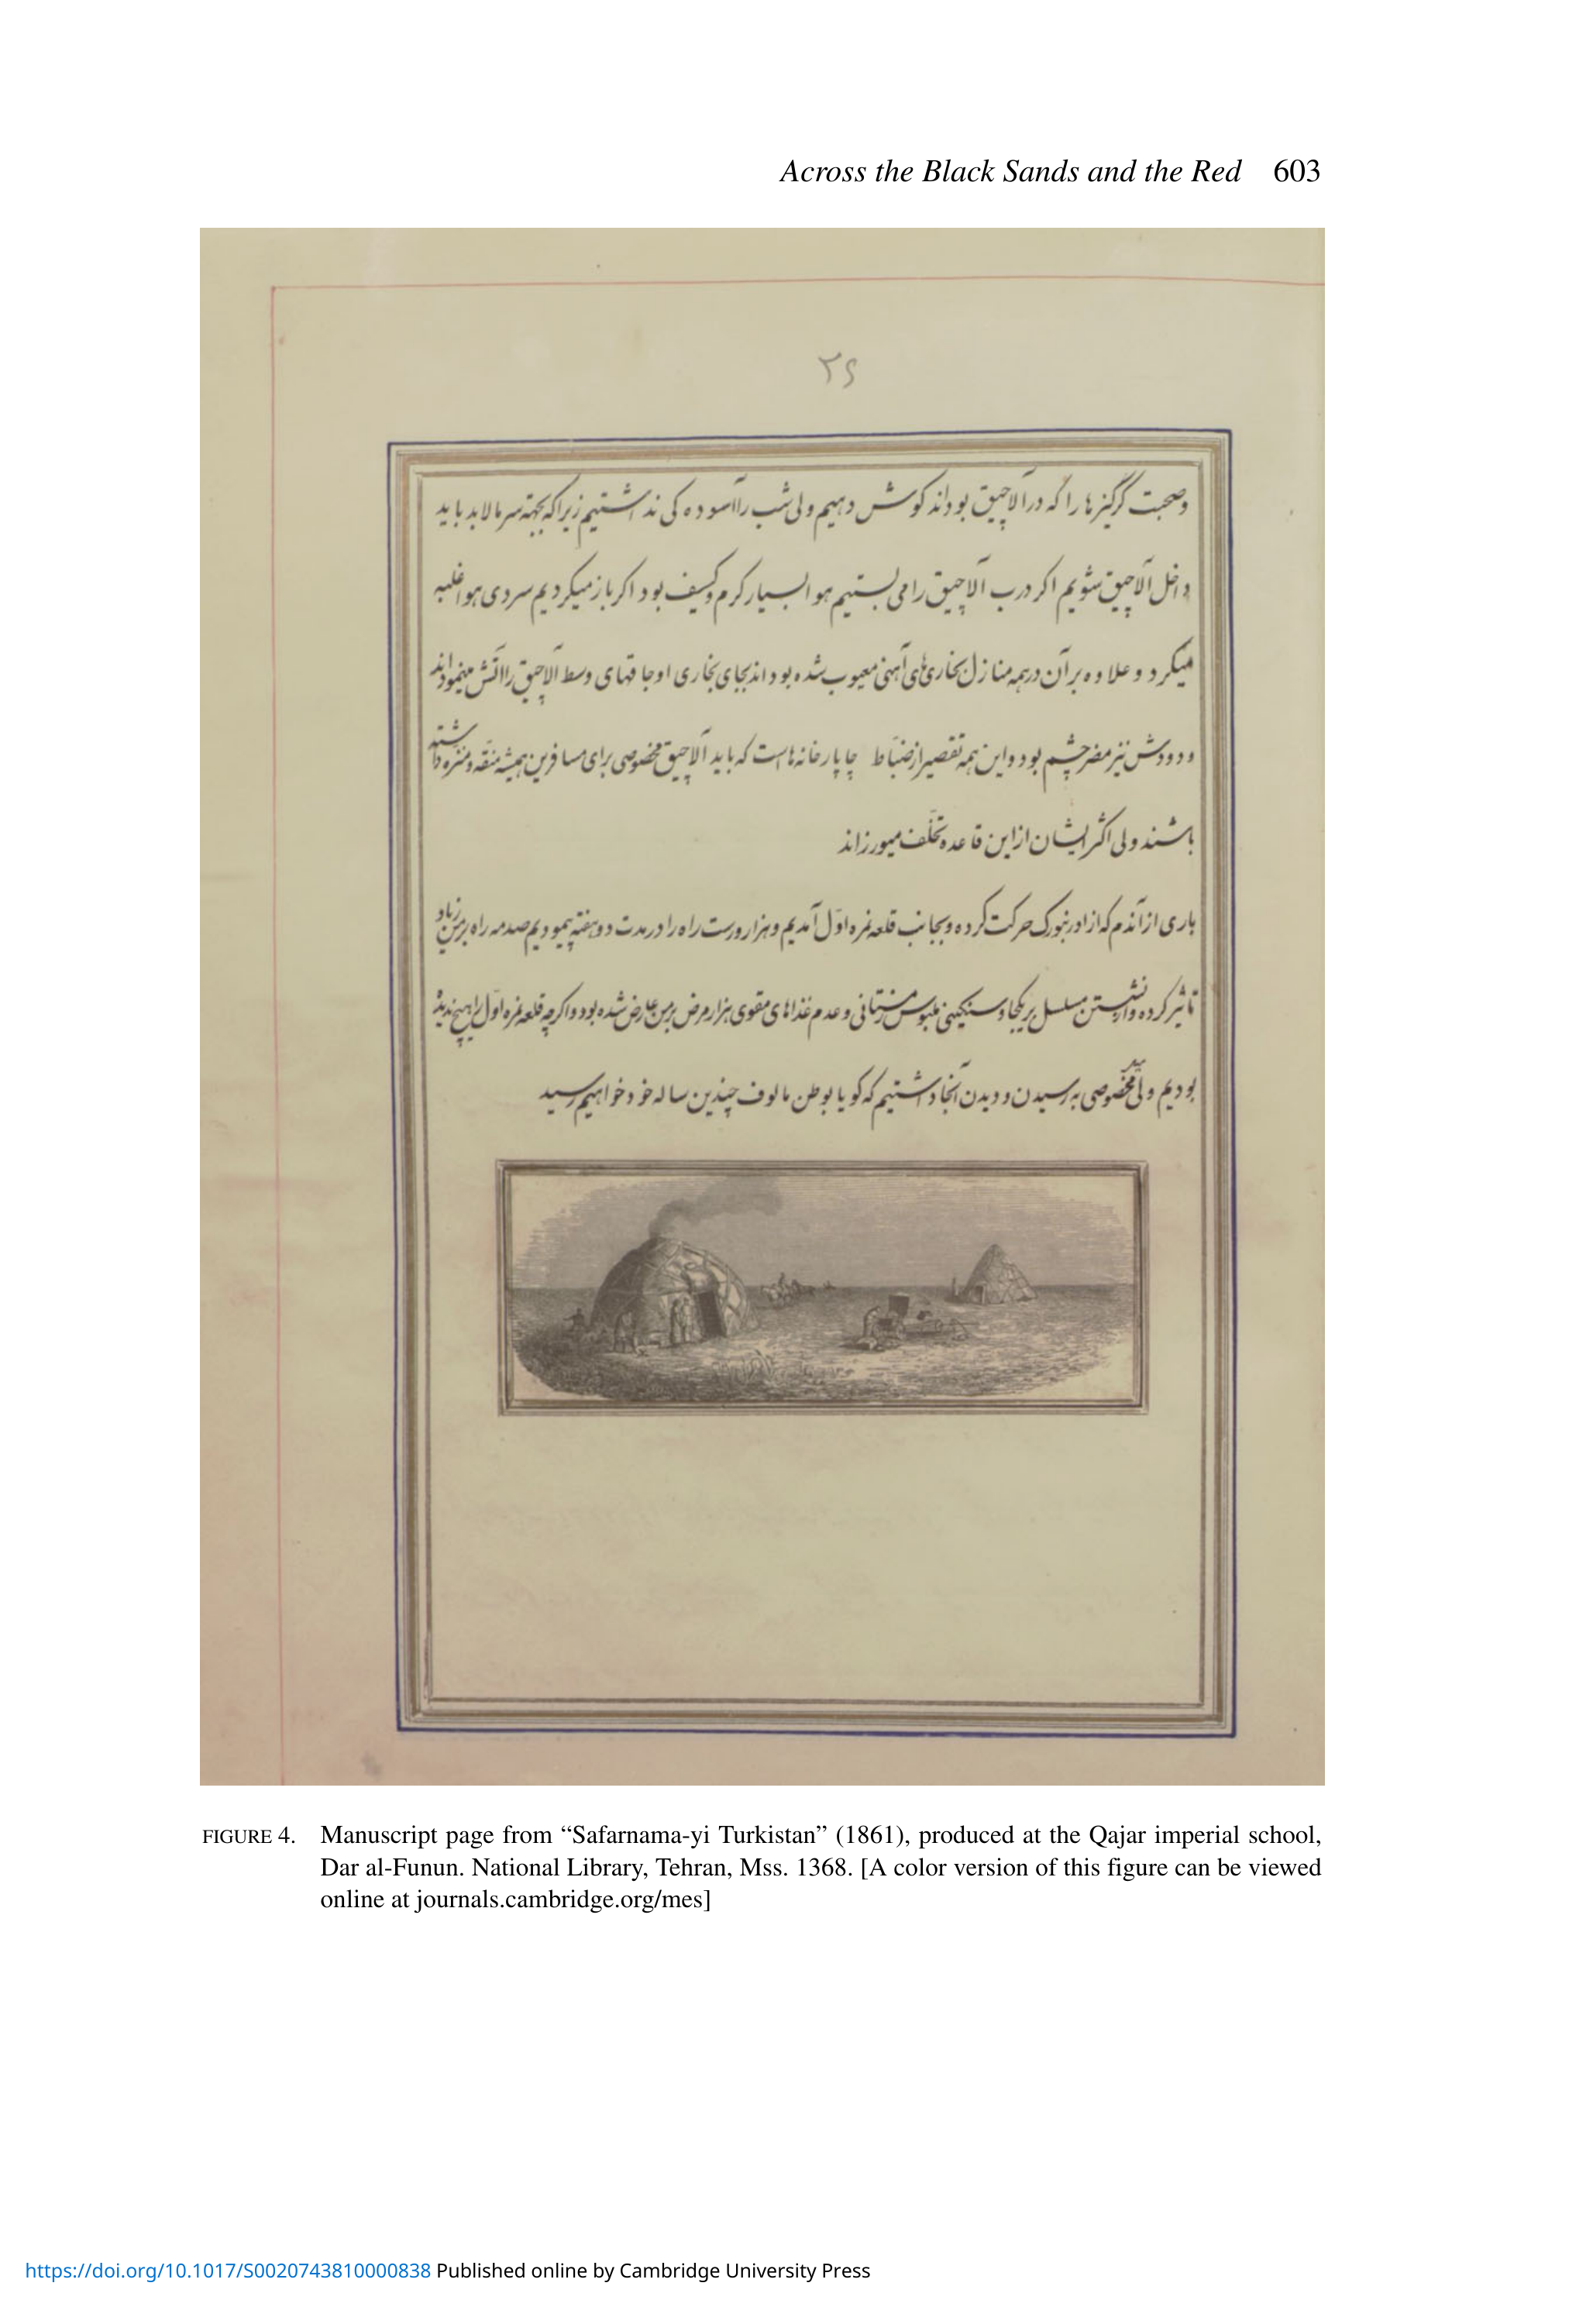 Across the Black Sands and the Red 603
۲۶
وصحبت کرگیزها را که در آلاچیق بوداند کوش دهیم ولی شب را آسوده کی نداشتیم زیرا که بجهته سرما لابد باید
داخل آلاچیق شویم اکر درب آلاچیق را می بستیم هوا بسیار کرم و کسیف بود اکر باز میکردیم سردی هوا غلبه
میکرد و علاوه بر آن در همه منازل بخاری های آهنی معیوب شده بوداند بجای بخاری اوجاقهای وسط آلاچیق را آتش مینموداند
و دودش نیز مضر چشم بود و این همه تقصیر از ضبّاط چاپارخانه هاست که باید آلاچیق مخصوصی برای مسافرین همیشه منقّه و منزه داشته
باشند ولی اکثر ایشان از این قاعده تخلّف میورزاند
باری از آندم که از ادرنبورک حرکت کرده و بجانب قلعه نمره اوّل آمدیم و هزار ورست راه را در مدت دو هفته پیمودیم صدمه راه بر من زیاد
تاثیر کرده و از نشستن مسلسل بر یکجا و سنکینی ملبوس زمستانی و عدم غذاهای مقوی هزار مرض بر من عارض شده بود و اکرچه قلعه نمره اوّل را هیچ ندیده
بودیم ولی مخصوصی به رسیدن و دیدن آنجا داشتیم که کویا بوطن مالوف چندین ساله خود خواهیم رسید
FIGURE 4. Manuscript page from “Safarnama-yi Turkistan” (1861), produced at the Qajar imperial school,
Dar al-Funun. National Library, Tehran, Mss. 1368. [A color version of this figure can be viewed
online at journals.cambridge.org/mes]
https://doi.org/10.1017/S0020743810000838 Published online by Cambridge University Press